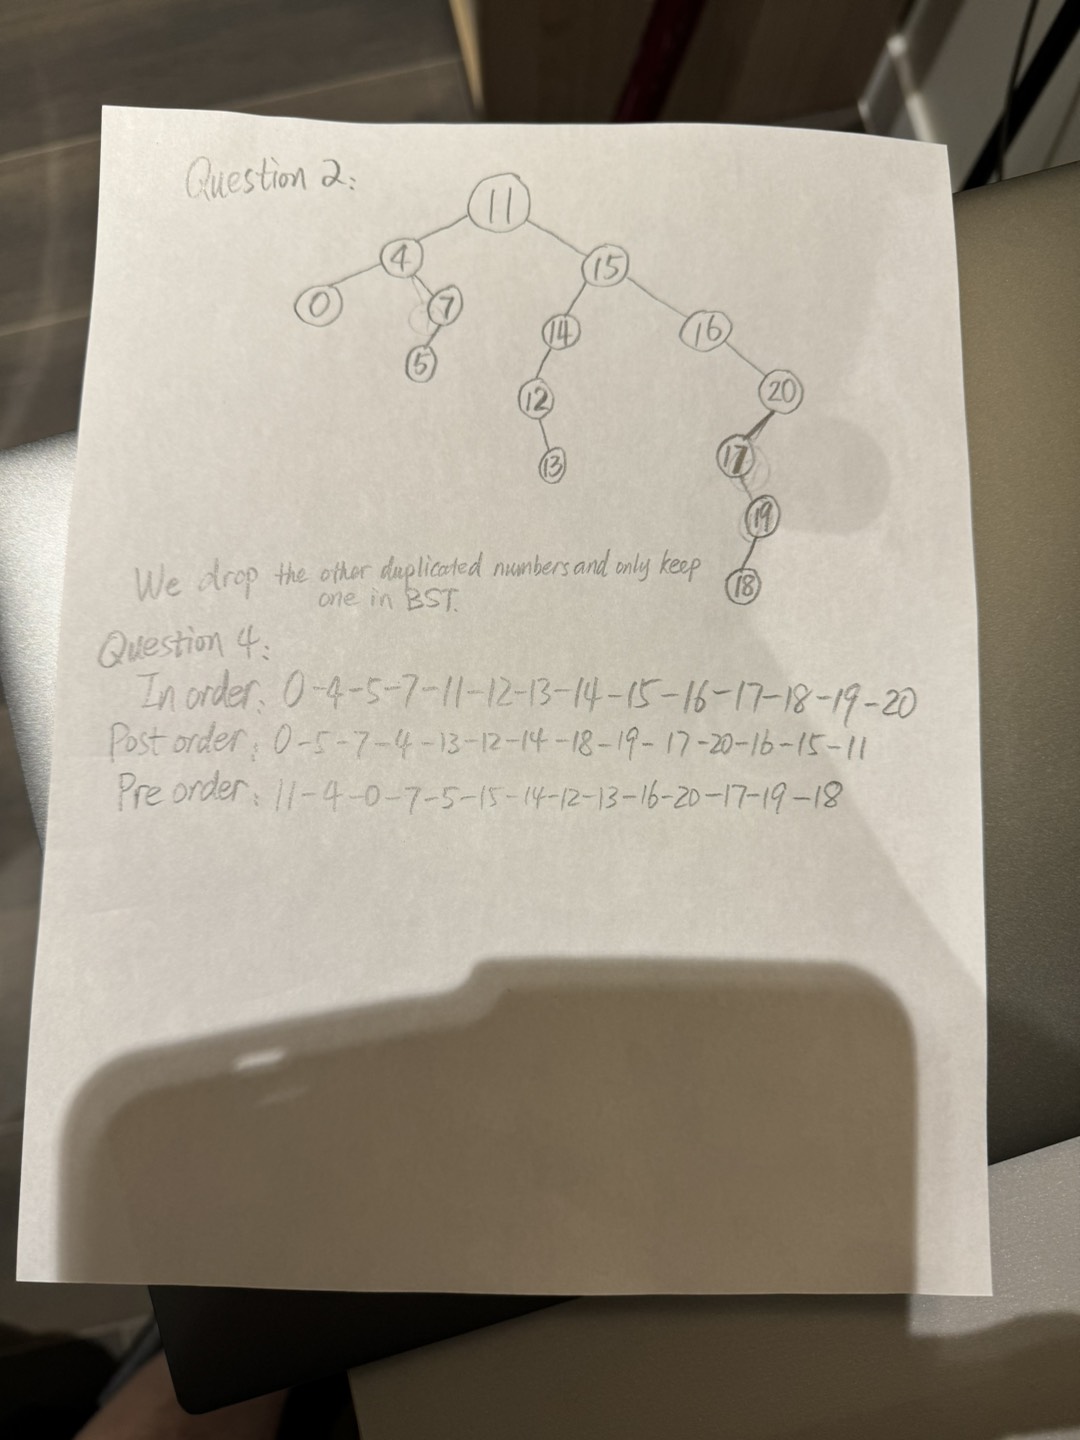 Question 2:
11
4
15
0
7
14
16
5
12
20
13
17
19
18
We drop the other duplicated numbers and only keep
one in BST.
Question 4:
In order: 0-4-5-7-11-12-13-14-15-16-17-18-19-20
Post order: 0-5-7-4-13-12-14-18-19-17-20-16-15-11
Pre order: 11-4-0-7-5-15-14-12-13-16-20-17-19-18